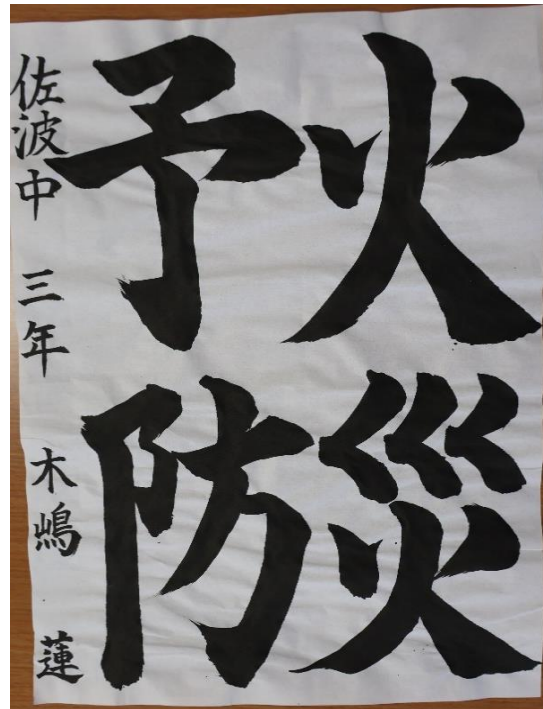 火災
予防
佐波中 三年 木嶋 蓮